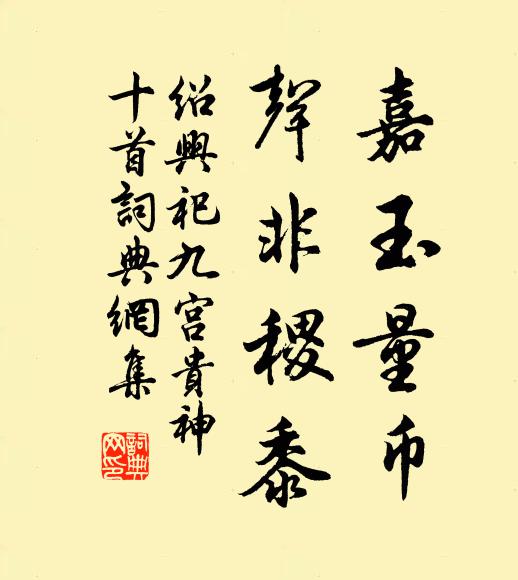 嘉玉量币
聲非稷黍
紹興祀九宮貴神
十首詞典網集
詞典網印